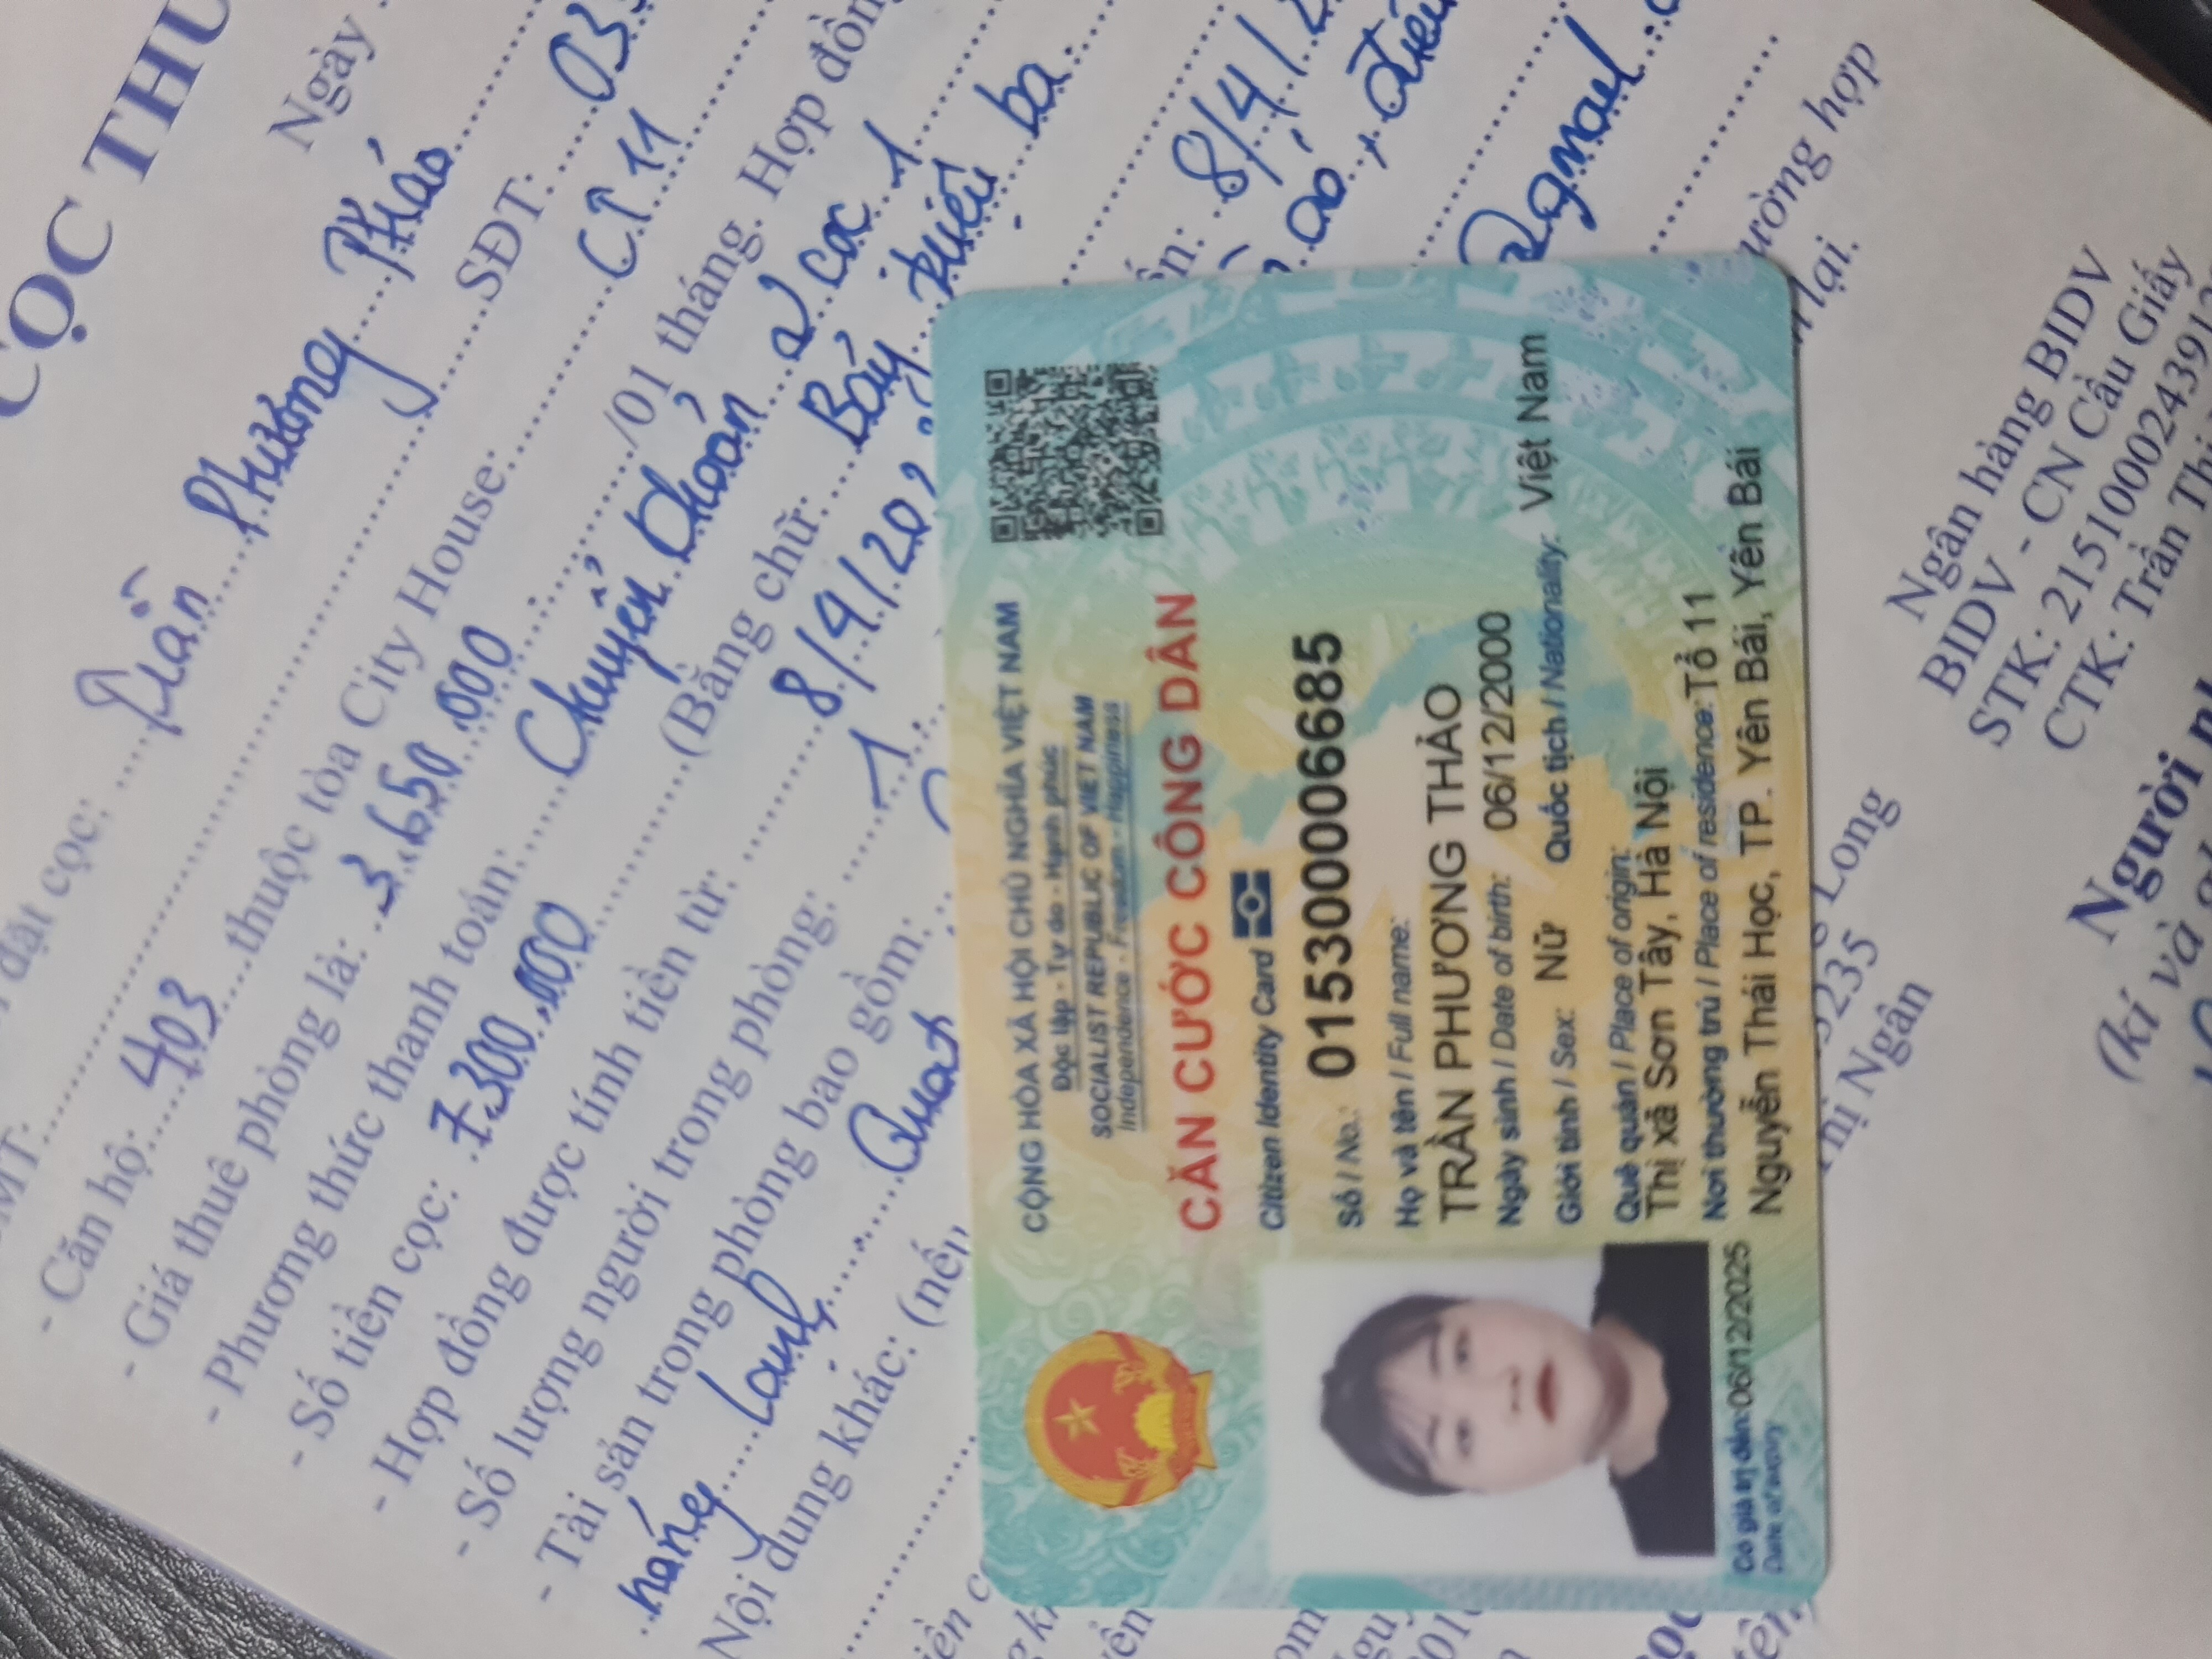 CỌC THU
Ngày
đặt cọc: Trần Phương Thảo
MT: SĐT: 03
- Căn hộ: 403 thuộc tòa City House: CT 11
- Giá thuê phòng là: 3.650.000 /01 tháng. Hợp đồn
- Phương thức thanh toán: Chuyển khoản 2 cọc 1
- Số tiền cọc: 7.300.000 (Bằng chữ: Bảy triệu ba
- Hợp đồng được tính tiền từ: 8/4/202 8/4/2
- Số lượng người trong phòng: 1
- Tài sản trong phòng bao gồm:
Nóng Lạnh, Quạt
Nội dung khác: (nếu
ường hợp
lại.
Ngân hàng BIDV
BIDV - CN Cầu Giấy
STK: 2151000243912
CTK: Trần Thị
Long
235
hị Ngân
Người
(kí và
CỘNG HÒA XÃ HỘI CHỦ NGHĨA VIỆT NAM
Độc lập - Tự do - Hạnh phúc
SOCIALIST REPUBLIC OF VIET NAM
Independence - Freedom - Happiness
CĂN CƯỚC CÔNG DÂN
Citizen Identity Card
Số / No.: 015300006685
Họ và tên / Full name:
TRẦN PHƯƠNG THẢO
Ngày sinh / Date of birth: 06/12/2000
Giới tính / Sex: Nữ Quốc tịch / Nationality: Việt Nam
Quê quán / Place of origin:
Thị xã Sơn Tây, Hà Nội
Nơi thường trú / Place of residence: Tổ 11
Nguyễn Thái Học, TP. Yên Bái, Yên Bái
Có giá trị đến: 06/12/2025
Date of expiry